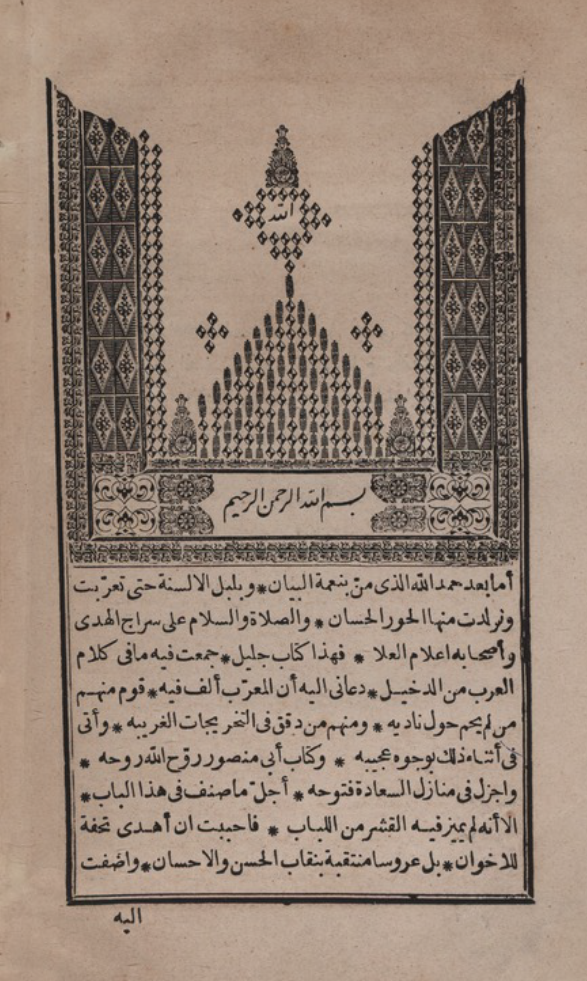 الله
بسم الله الرحمن الرحيم
أما بعد حمد الله الذى منّ بنعمة البيان * وبلبل الالسنة حتى تعرّبت
منها الحور الحسان * والصلاة والسلام على سراج الهدى
وأصحابه اعلام العلا * فهذا كتاب جليل * جمعت فيه ما فى كلام
العرب من الدخيل * دعانى اليه أن المعرّب ألف فيه * قوم منهم
من لم يحم حول ناديه * ومنهم من دقق فى التخريجات الغريبه * وأتى
فى أثناء ذلك بوجوه عجيبه * وكتاب أبى منصور روّح الله روحه *
واجزل فى منازل السعادة فتوحه * أجلّ ما صنف فى هذا الباب *
الا أنه لم يميز فيه القشر من اللباب * فاحببت ان أهدى تحفة
للاخوان * بل عروسا منتقبة بنقاب الحسن والاحسان * واضفت
اليه